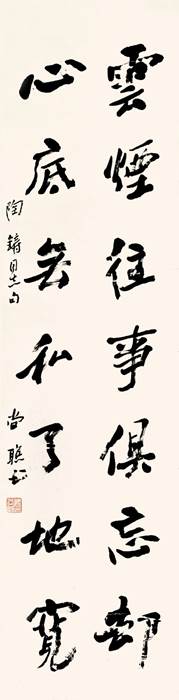 雲煙往事俱忘却
心底無私天地寬
陶鑄同志句